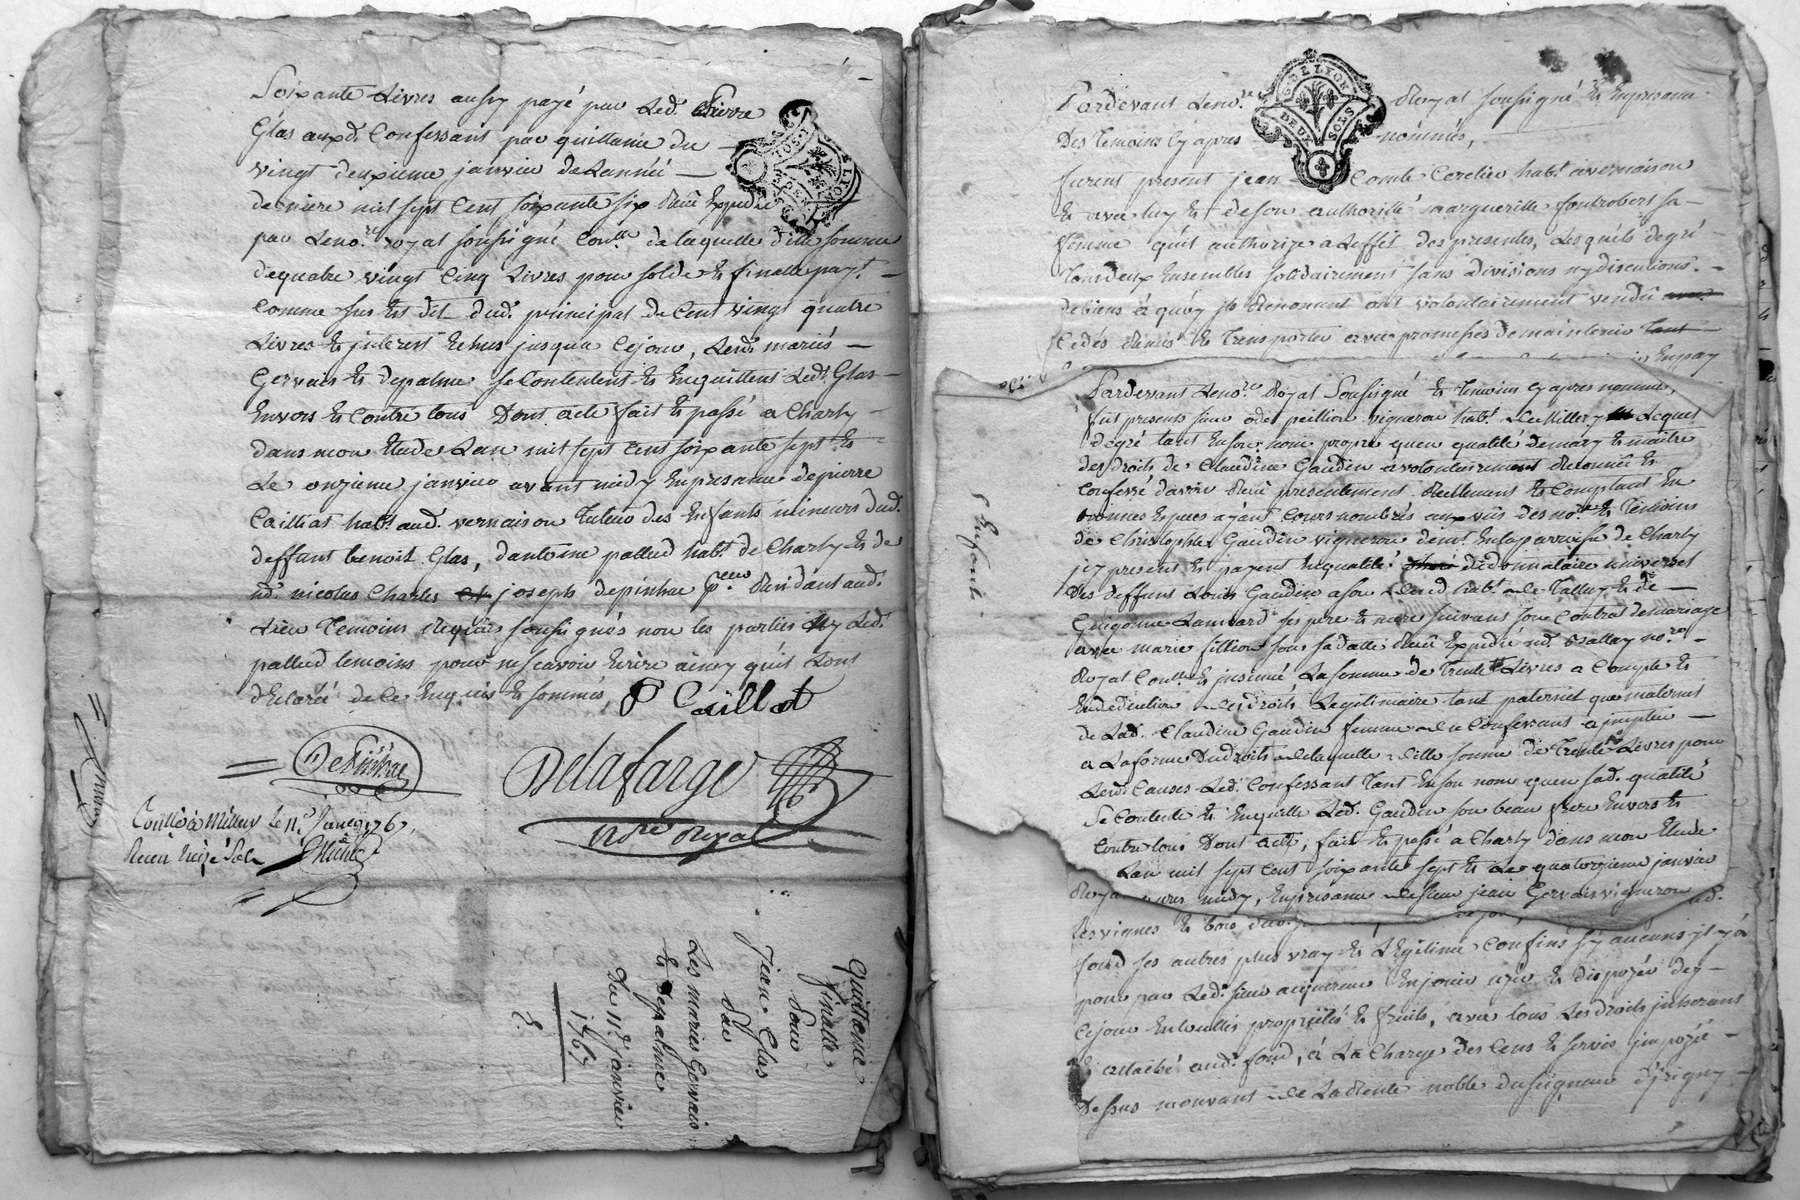 Soixante Livres aussy payé par Led. Pierre
Glas auxd. Confessant par quittance du
vingt deuxieme janvier de Lannéé
derniere mil sept Cent soixante six Reüe Expediée
par Leno.re royal soussigné Con.llé de laquelle d'itte somme
dequatre vingt Cinq Livres pour solde & finalle pay.t
Comme sus Est Dit dud. principal de Cent vingt quatre
Livres & jnterest Echus jusqua Cejour, Lesd. mariés
Gervais & depalme se Contentent & Enquittent Led. Glas
Envers & Contre tous Dont acte fait & passé a Charly
dans mon Etude Lan mil sept Cent soixante sept &
Le onzieme janvier avant midy En presence de pierre
Cailliat hab.t aud. vernaison Tuteur des Enfants mineurs dud.
deffunt benoit Glas, dantoine pallud hab.t de Charly & de
nicolas Charles joseph depinhac residant aud.
Lieu Temoins Requis soussignés non les parties Ny Led.
pallud temoins pour ne scavoir Ecrire ainsy quils Lont
d'Eclaré de Ce Enquis & sommés, P Caillat
DePinhac
Delafarge
No.re royal
Conllé à Millery le 11.e Janv. 1767.
Receu treize Sols
Quittance
finalle
pour
jean Glas
par
Les mariés Gervais
& depalme
Du 11.e janvier
1767
G. DE LYON
DEUX SOLS
Pardevant Leno.re Royal soussigné & En presence
Des Temoins Cy apres nommés,
furent present jean Combe Cordier hab.t a vernaison
& avec luy & de son authorité margueritte fontrobert sa
femme quil authorize a Leffét des presentes, Lesquels de gré
Tous deux Ensembles solidairement sans divisions ny discutions
debiens a quoy jls Renoncent ont volontairement vendü
Cedés Remis & Transportés avec promesses de maintenir
En pay
Pardevant Leno.re Royal Soussigné & Temoins Cy apres nommés
fut presents sieur peillion vigneron hab.t de Millery Lequel
de gré tant En son nom propre quen qualité de mary & maitre
des droits de Claudine Gaudin a volontairement Reconnü &
Confessé d'avoir Reüe presentement Reellement & Comptant En
bonnes Especes ayant Cours nombrés aux vüs des no.re & Temoins
de Christophe Gaudin vigneron dem.t En la parroisse de Charly
jcy present & payent En qualité de donnataire universel
Des deffunts Louis Gaudin
Guigonne Lambard ses pere & mere suivant son Contrat de mariage
avec marie fillion sous sa datte Reüe Expedié
Royal Conllé & jnsinué La somme de Trente Livres a Compte &
En deduction des droits Legitimaire tant paternel que maternel
de Lad. Claudine Gaudin femme du Confessant
a La forme Du droits de laquelle ditte somme de Trente Livres pour
Lesd. Causes Led. Confessant Tant En son nom quen sad. qualité
Se Contente & Enquitte Led. Gaudin son beau frere Envers &
Contre tous Dont acte, fait & passé a Charly dans mon Etude
Lan mil sept Cent soixante sept & Le quatorzieme janvier
apres midy, En presence de sieur jean Gervais vigneron
les vignes & bois
fond ses autres plus vray & Legitime Confins sy aucuns jl y a
pour par Led. sieur acquereur En jouir uzer & disposer dez
Cejour En touttes proprietés & fruits, avec tous Les droits jnherants
& attaché aud. fond, a La Charge des Cens & servis jmpozé
Dessus mouvant de La Rente noble du seigneur d'jrigny